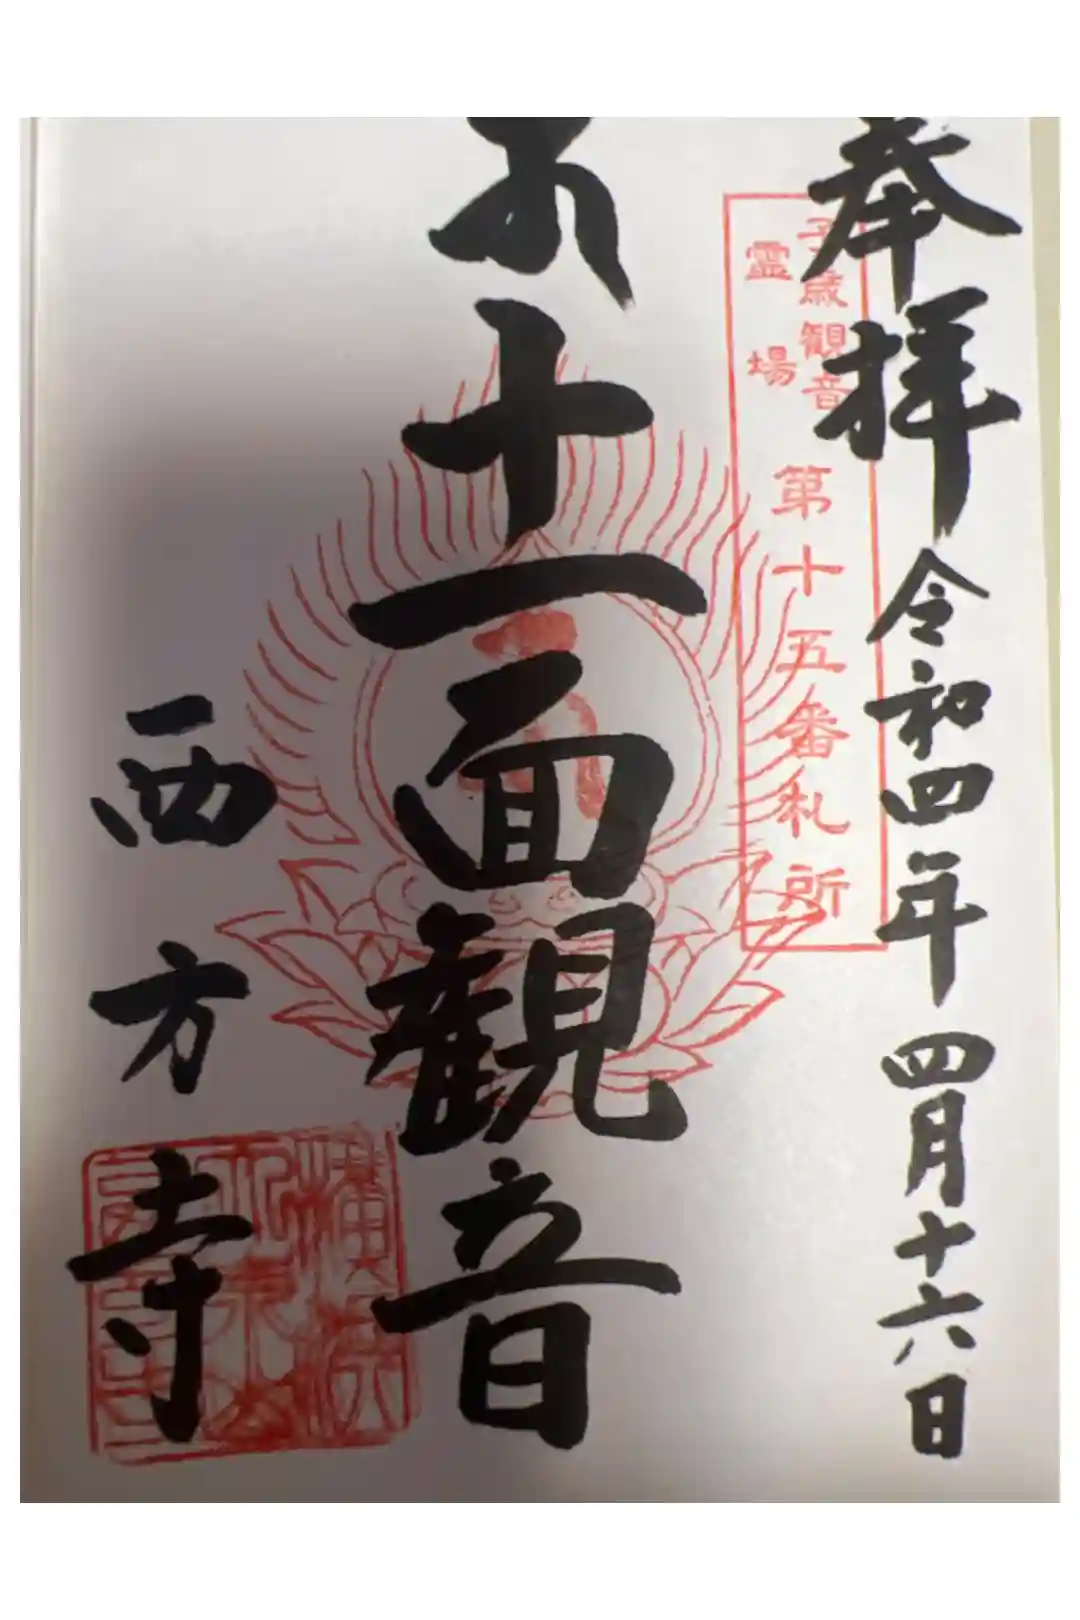 奉拝 令和四年 四月十六日
子歳観音
霊場
第十五番札所
十一面観音
西方寺